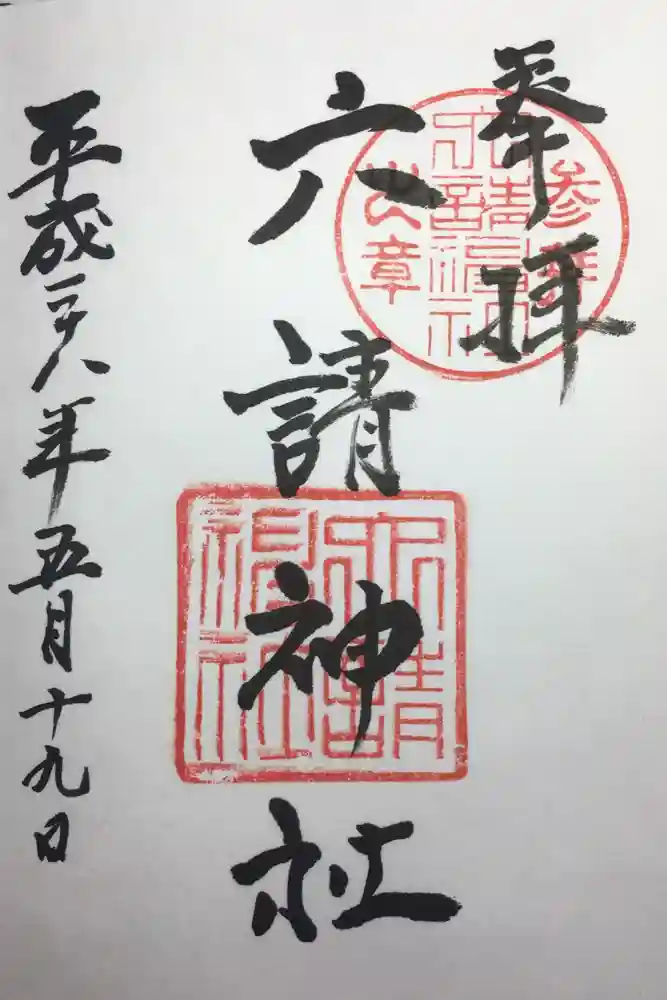 奉拝
六請神社
平成二十八年五月十九日
参拝
六請神社
之章
六請神社